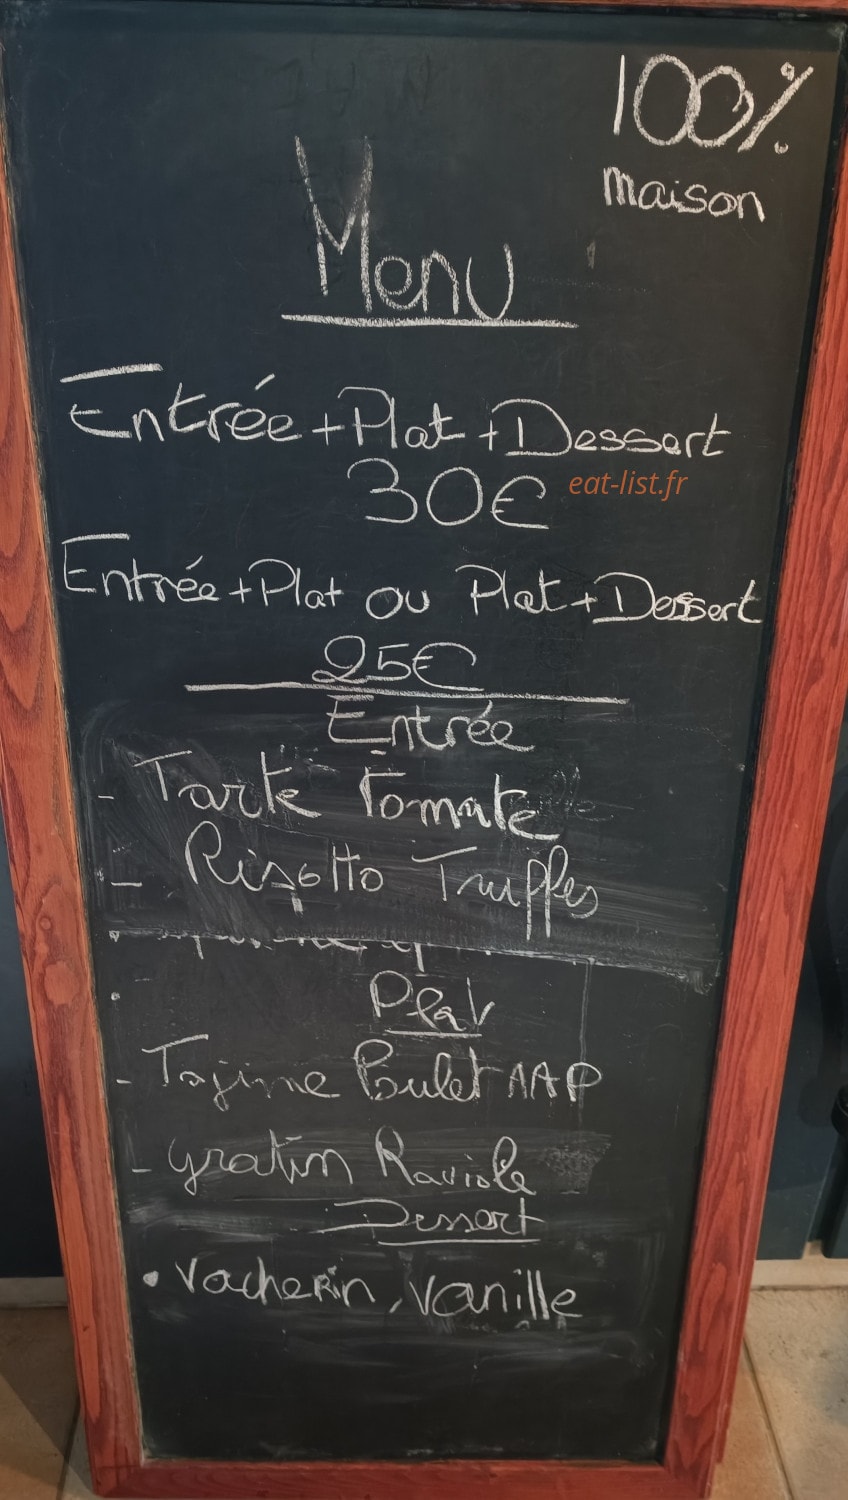 100%
maison
Menu
Entrée+Plat+Dessert
30€
eat-list.fr
Entrée+Plat ou Plat+Dessert
25€
Entrée
- Tarte Tomate
- Rizotto Truffes
Plat
- Tajine Poulet AAP
- gratin Raviole
Dessert
• Vacherin, vanille